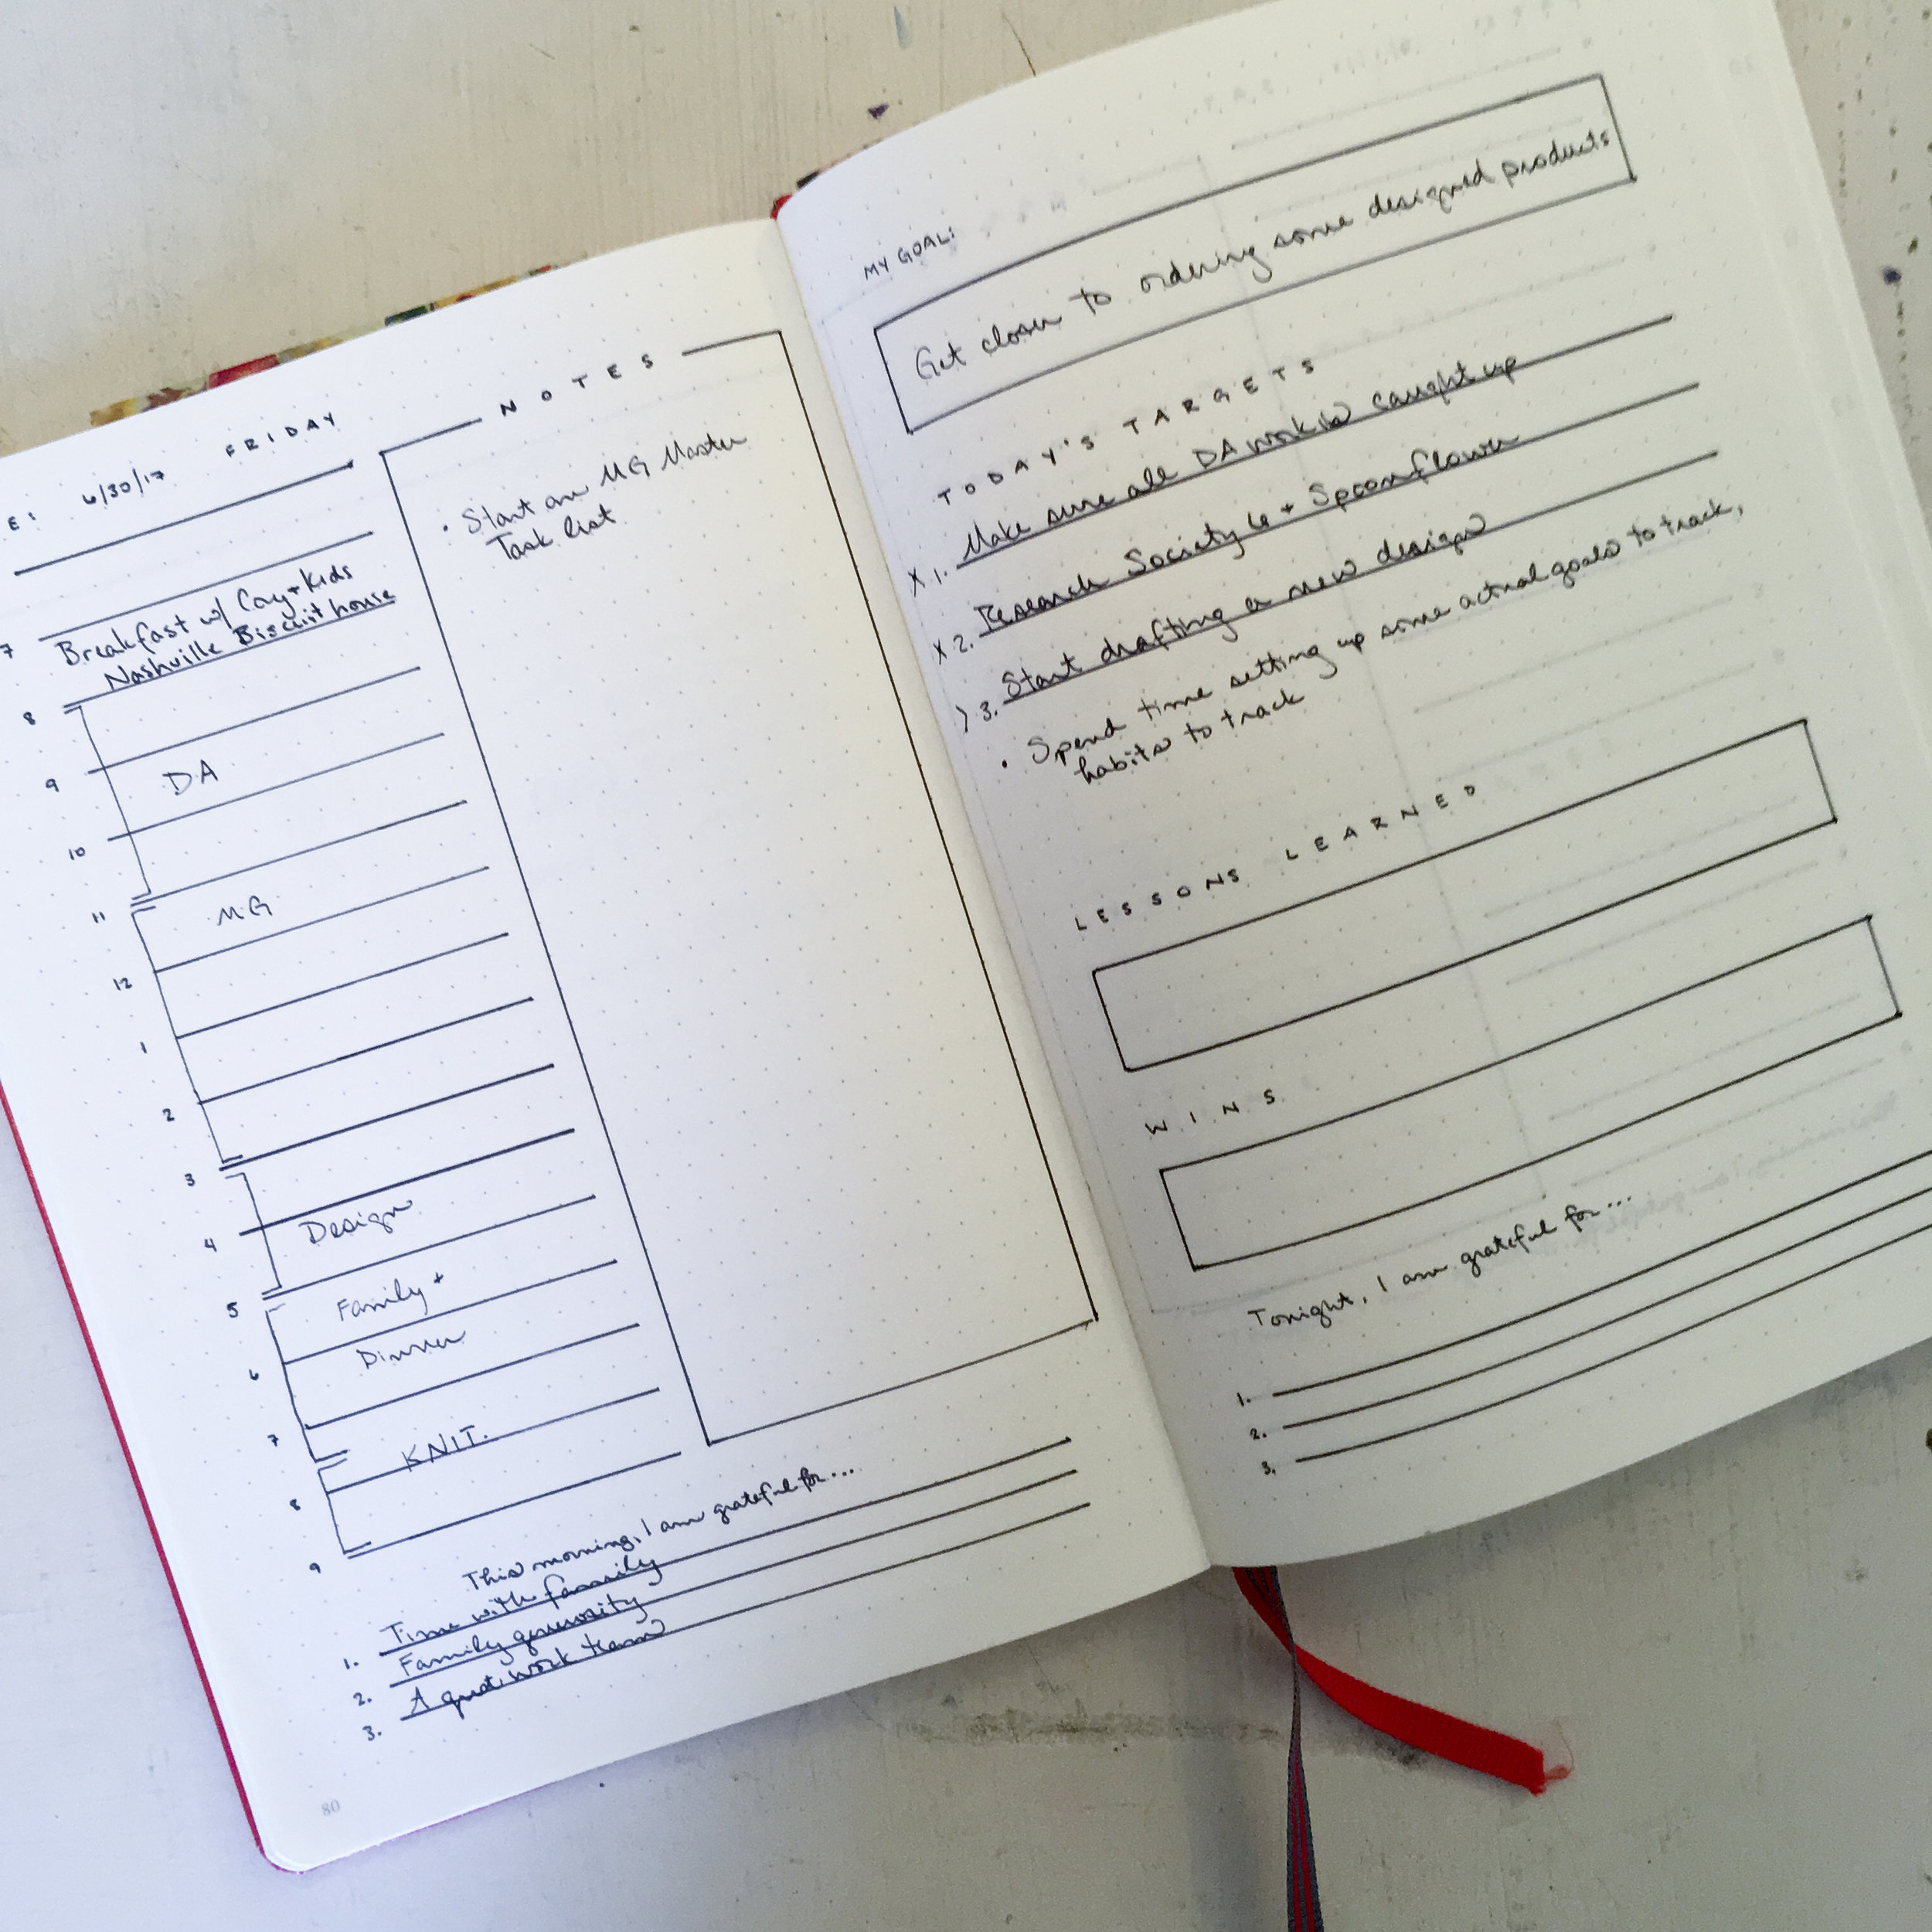 E: 6/30/17 FRIDAY
7 Breakfast w/ Cay + Kids
Nashville Biscuit house
8
9 DA
10
11 MG
12
1
2
3
4 Design
5 Family +
6 Dinner
7 KNIT.
8
9
NOTES
• Start an MG Master
Task list
This morning, I am grateful for...
1. Time with family
2. Family generosity
3. A great work team
80
MY GOAL:
Get closer to ordering some designed products
TODAY'S TARGETS
X 1. Make sure all DA work is caught up
X 2. Research Society 6 + Spoonflower
> 3. Start drafting a new design
• Spend time setting up some actual goals to track,
habits to track
LESSONS LEARNED
WINS
Tonight, I am grateful for...
1.
2.
3.